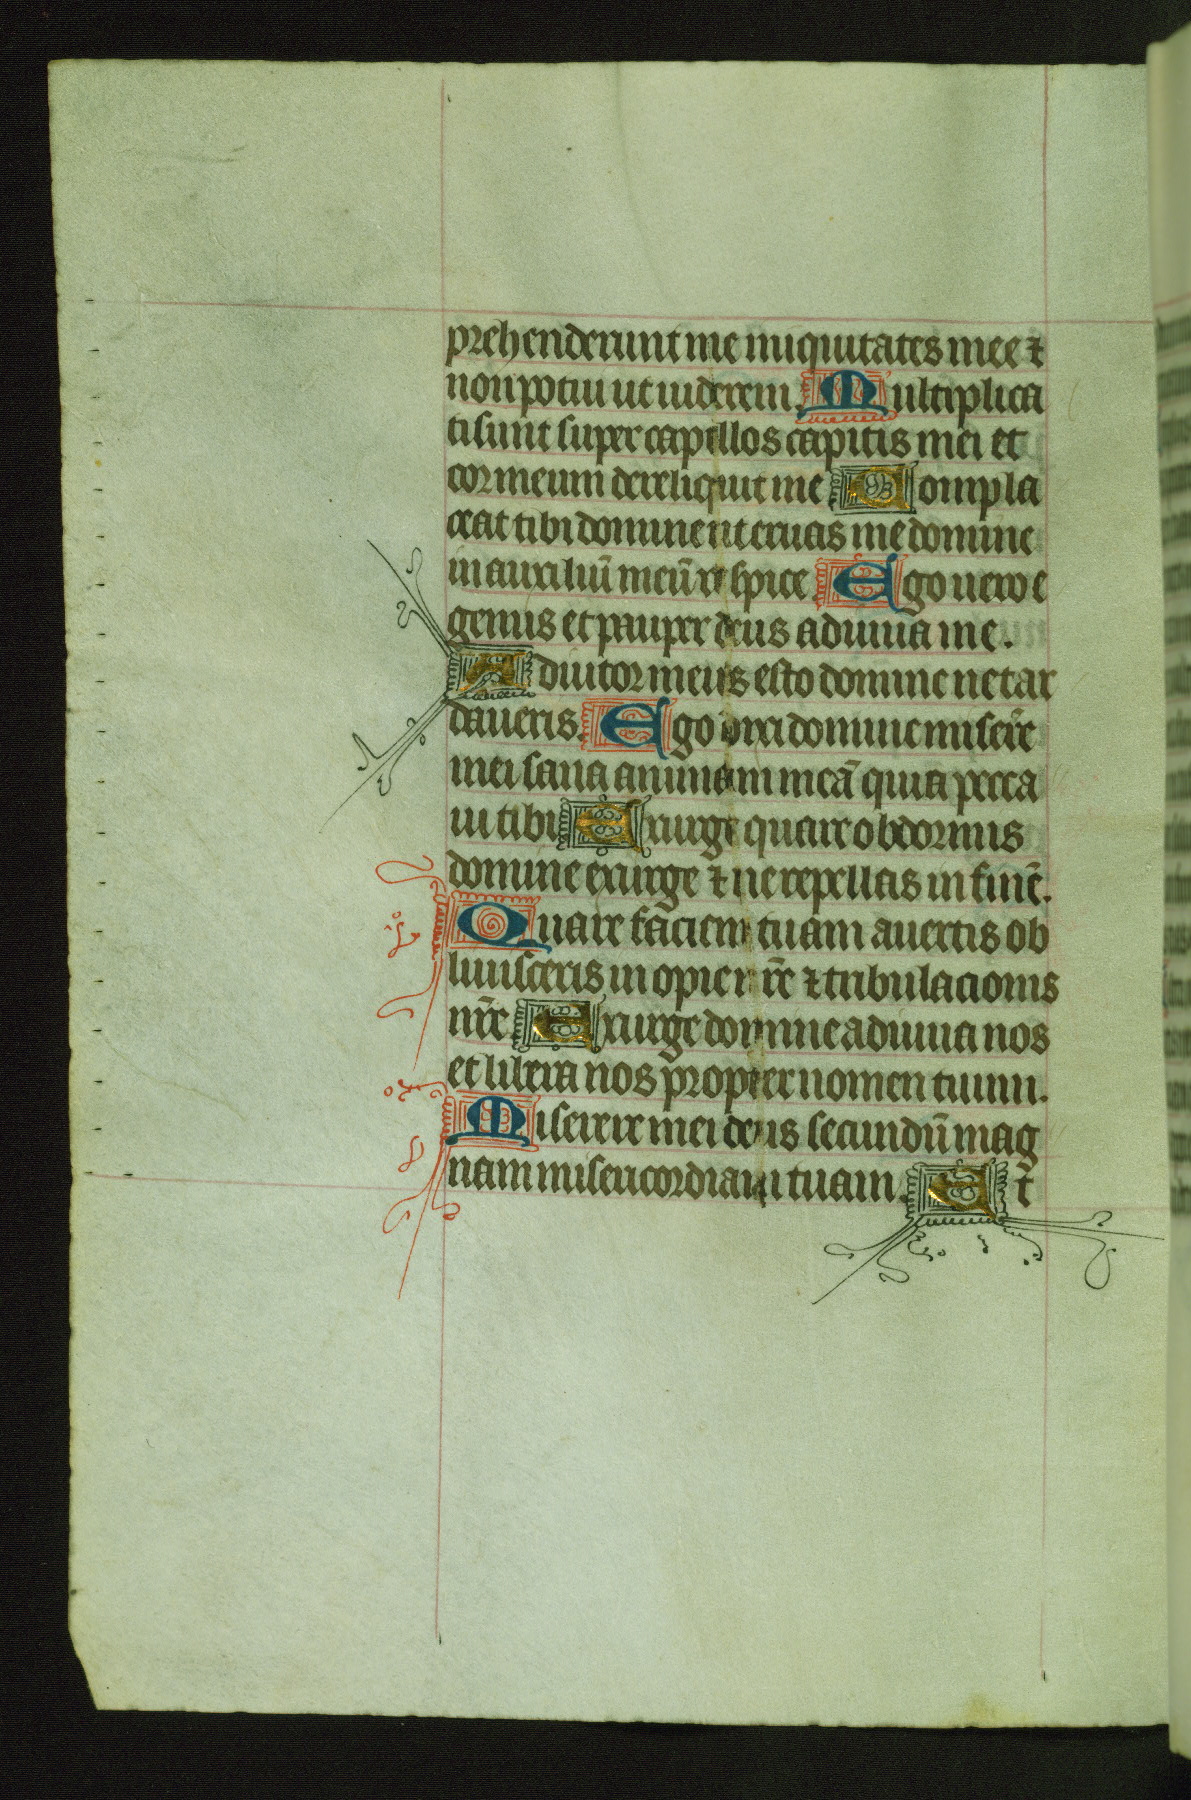 prehenderunt me iniquitates mee ⁊
non potui ut viderem. Multiplica
ti sunt super capillos capitis mei et
cor meum dereliquit me Compla
ceat tibi domine ut eruas me domine
in auxiliū meū respice. Ego vero e
genus et pauper deus adiuva me.
Adiutor meus esto domine ne tar
daveris. Ego dixi domine miserere
mei sana animam meā quia pecca
vi tibi Exurge quare obdormis
domine exurge ⁊ ne repellas in finē.
Quare faciem tuam avertis ob
livisceris inopie nr̄e ⁊ tribulacionis
nr̄e Exurge domine adiuva nos
et libera nos propter nomen tuum.
Miserere mei deus secundū mag
nam misericordiam tuam. Et